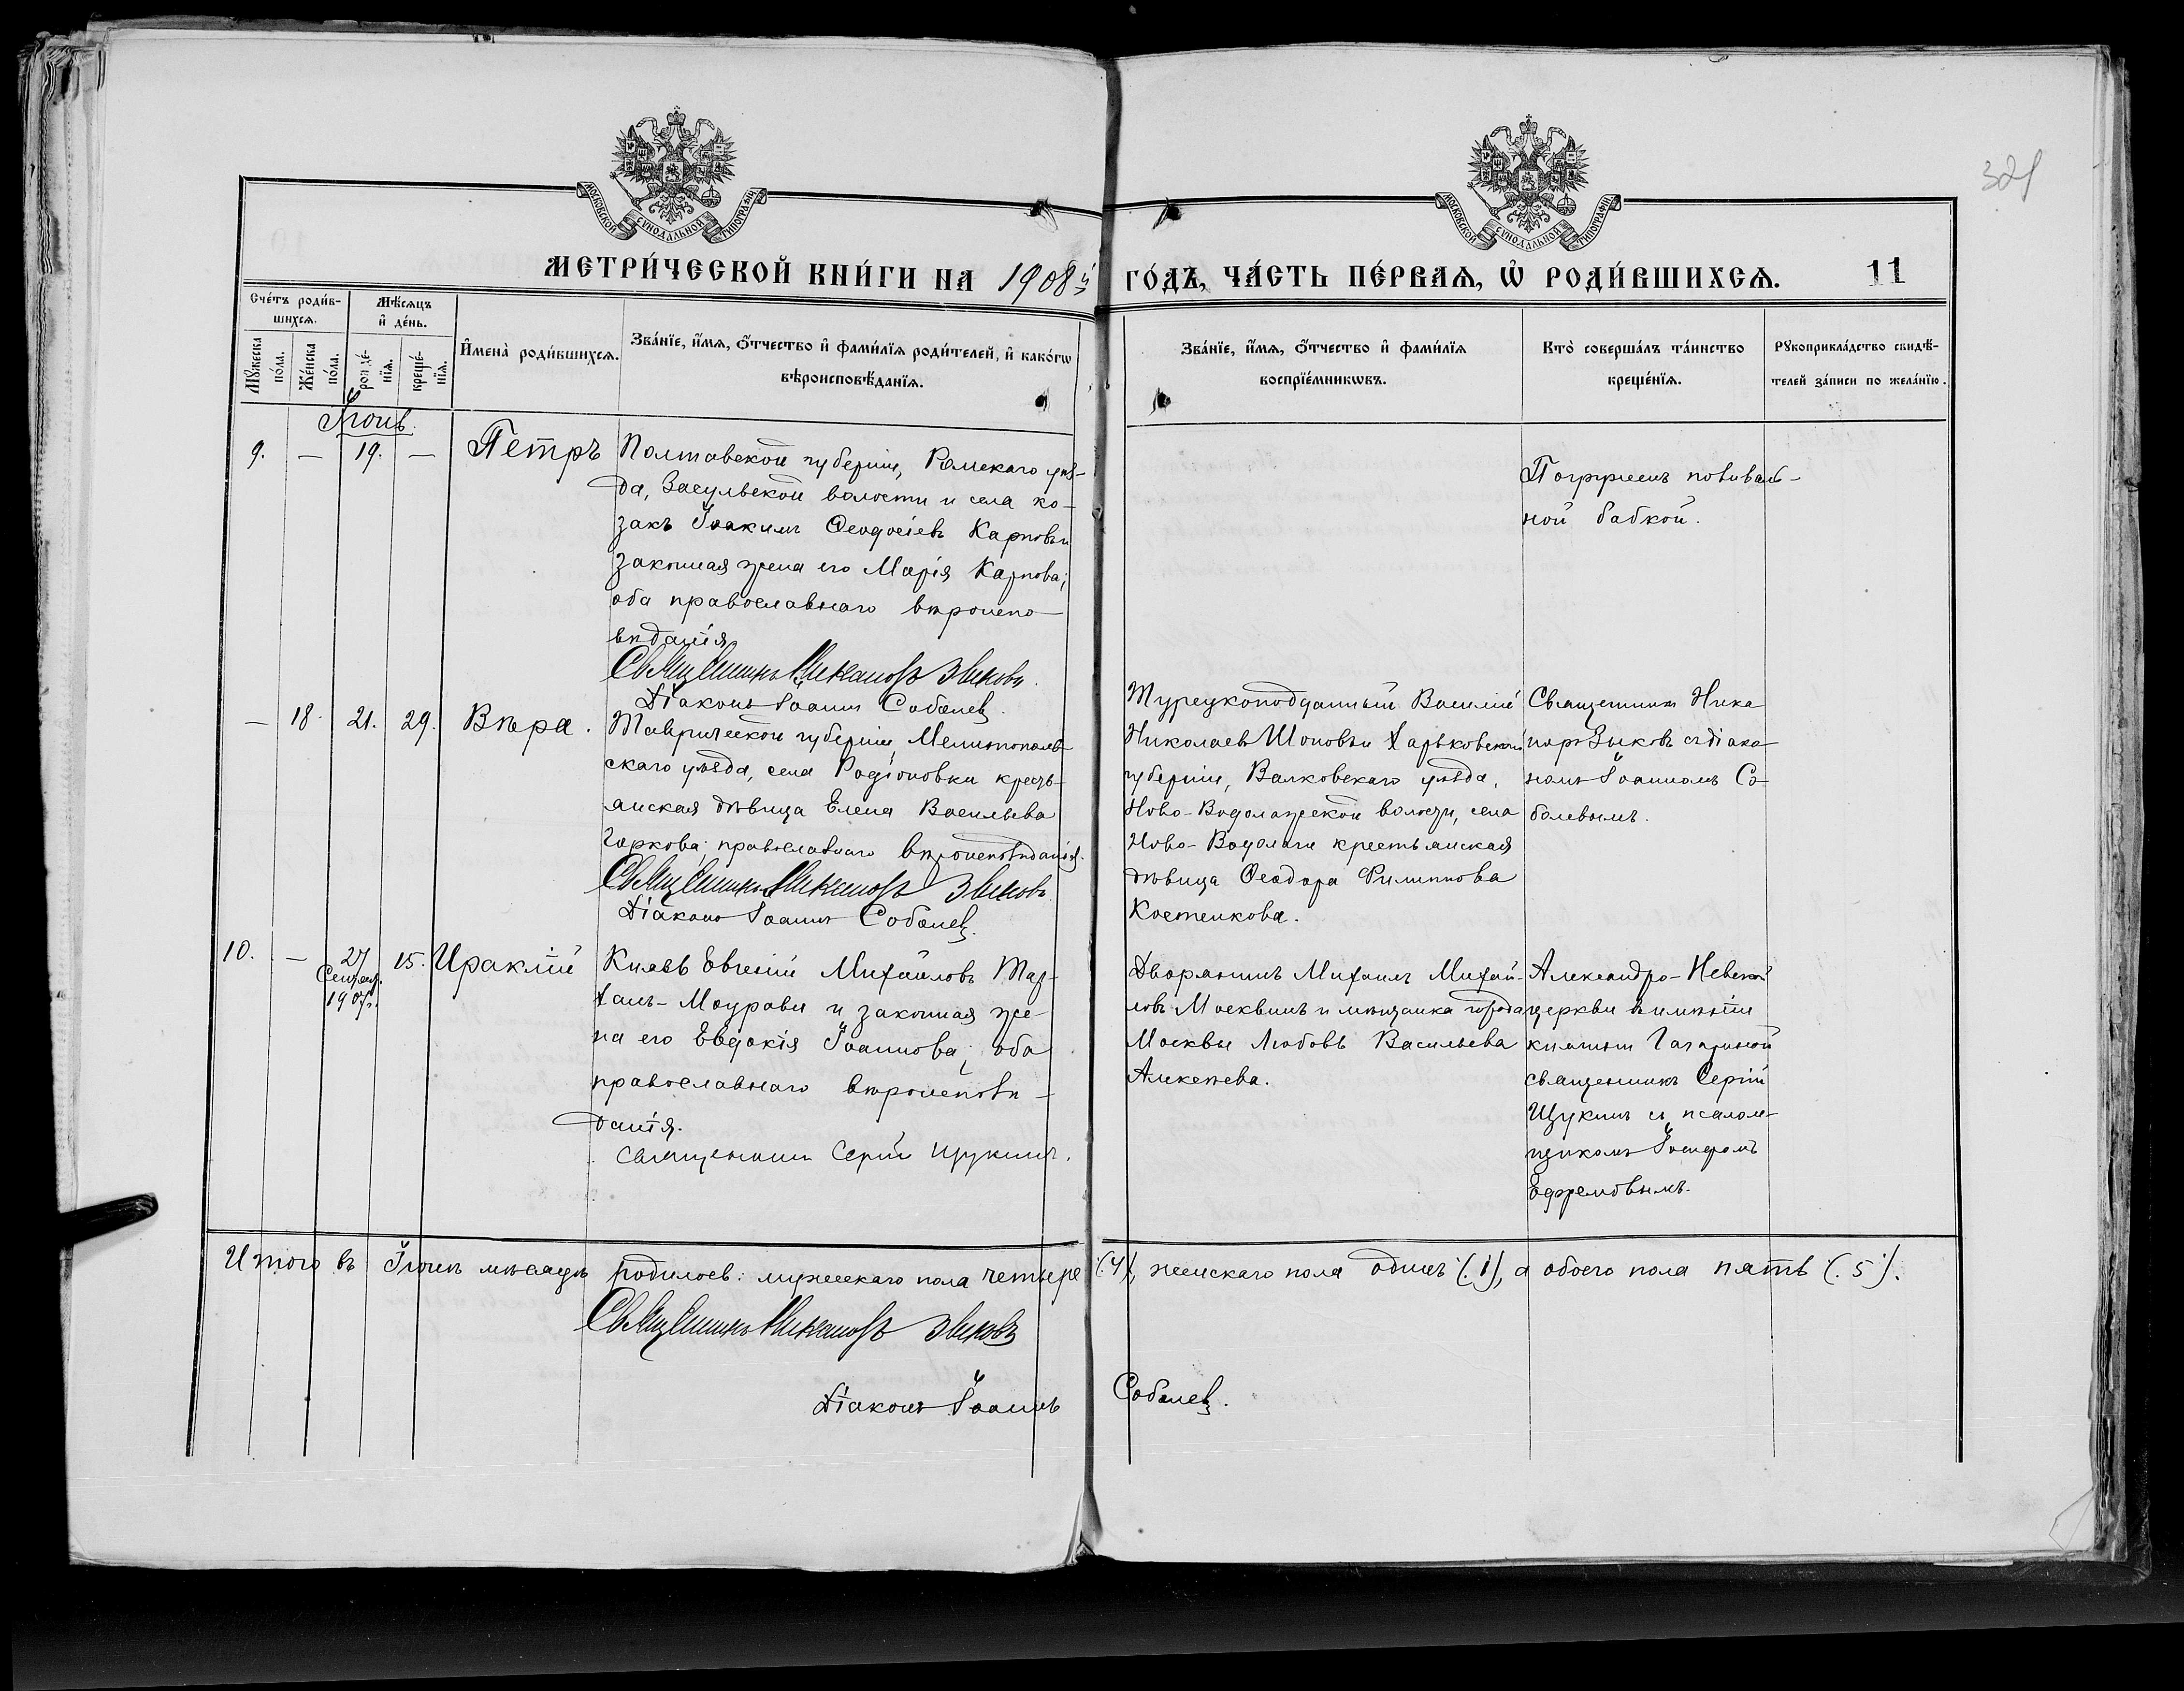 321
МОСКОВСКОЙ СѴНОДАЛЬНОЙ ТИПОГРАФІИ
МОСКОВСКОЙ СѴНОДАЛЬНОЙ ТИПОГРАФІИ
МЕТРИ́ЧЕСКОЙ КНИ́ГИ НА 1908й ГО́ДЪ, ЧА́СТЬ ПЕ́РВАѦ, Ѡ҆ РОДИ́ВШИХСѦ. 11
Сче́тъ роди́в-
шихсѧ.
Мꙋ́жеска по́ла.
Же́нска по́ла.
Мѣ́сѧцъ
и҆ де́нь.
рожде́-
нїѧ.
креще́-
нїѧ.
И҆мена̀ роди́вшихсѧ.
Зва́нїе, и҆́мѧ, ѻ҆́тчество и҆ фами́лїѧ роди́телей, и҆ како́гѡ
вѣроисповѣ́данїѧ.
Зва́нїе, и҆́мѧ, ѻ҆́тчество и҆ фами́лїѧ
воспрїе́мникѡвъ.
Кто̀ соверша́лъ та́инство
креще́нїѧ.
Рꙋкоприкла́дство свидѣ́-
телей за́писи по жела́нїю.
Іюнь.
9. — 19. — Петръ
Полтавской губерніи, Роменскаго уѣз-
да, Засульской волости и села ко-
закъ Іоакимъ Ѳеодосіевъ Карповъ и
законная жена его Марія Карпова;
оба православнаго вѣроиспо-
вѣданія
Священникъ Никаноръ Зыковъ.
Діаконъ Іоаннъ Соболев.
Погружен повиваль-
ной бабкой.
— 18. 21. 29. Вѣра.
Таврической губерніи, Мелитополь-
скаго уѣзда, села Родіоновки кресть-
янская дѣвица Елена Васильева
Горкова; православнаго вѣроисповѣданія.
Священникъ Никаноръ Зыковъ.
Діаконъ Іоаннъ Соболев.
Турецкоподданный Василій
Николаевъ Шоповъ и Харьковской
губерніи, Валковскаго уѣзда,
Ново-Водолажской волости, села
Ново-Водолаги крестьянская
дѣвица Ѳеодора Филиппова
Костенкова.
Священникъ Ника
норъ Зыковъ съ діако
номъ Іоанномъ Со-
болевымъ.
10. — 27 Сентяб. 1907г. 15. Ираклій
Князь Евгеній Михайловъ Тар-
ханъ-Моурави и законная же-
на его Евдокія Іоаннова; оба
православнаго вѣроисповѣ-
данія.
Священникъ Сергій Щукинъ.
Дворянинъ Михаилъ Михай-
ловъ Москвинъ и мѣщанка города
Москвы Любовь Васильева
Александро-Невской
церкви въ имѣніи
княгини Гагариной
священникъ Сергій
Щукинъ съ псалом-
щикомъ Іосифомъ
Ефремовымъ.
Итого въ Іюнѣ мѣсяцѣ родилось: мужескаго пола четыре (.4.), женскаго пола одинъ (.1.), а обоего пола пять (.5.).
Священникъ Никаноръ Зыковъ
Діаконъ Іоаннъ Соболев.